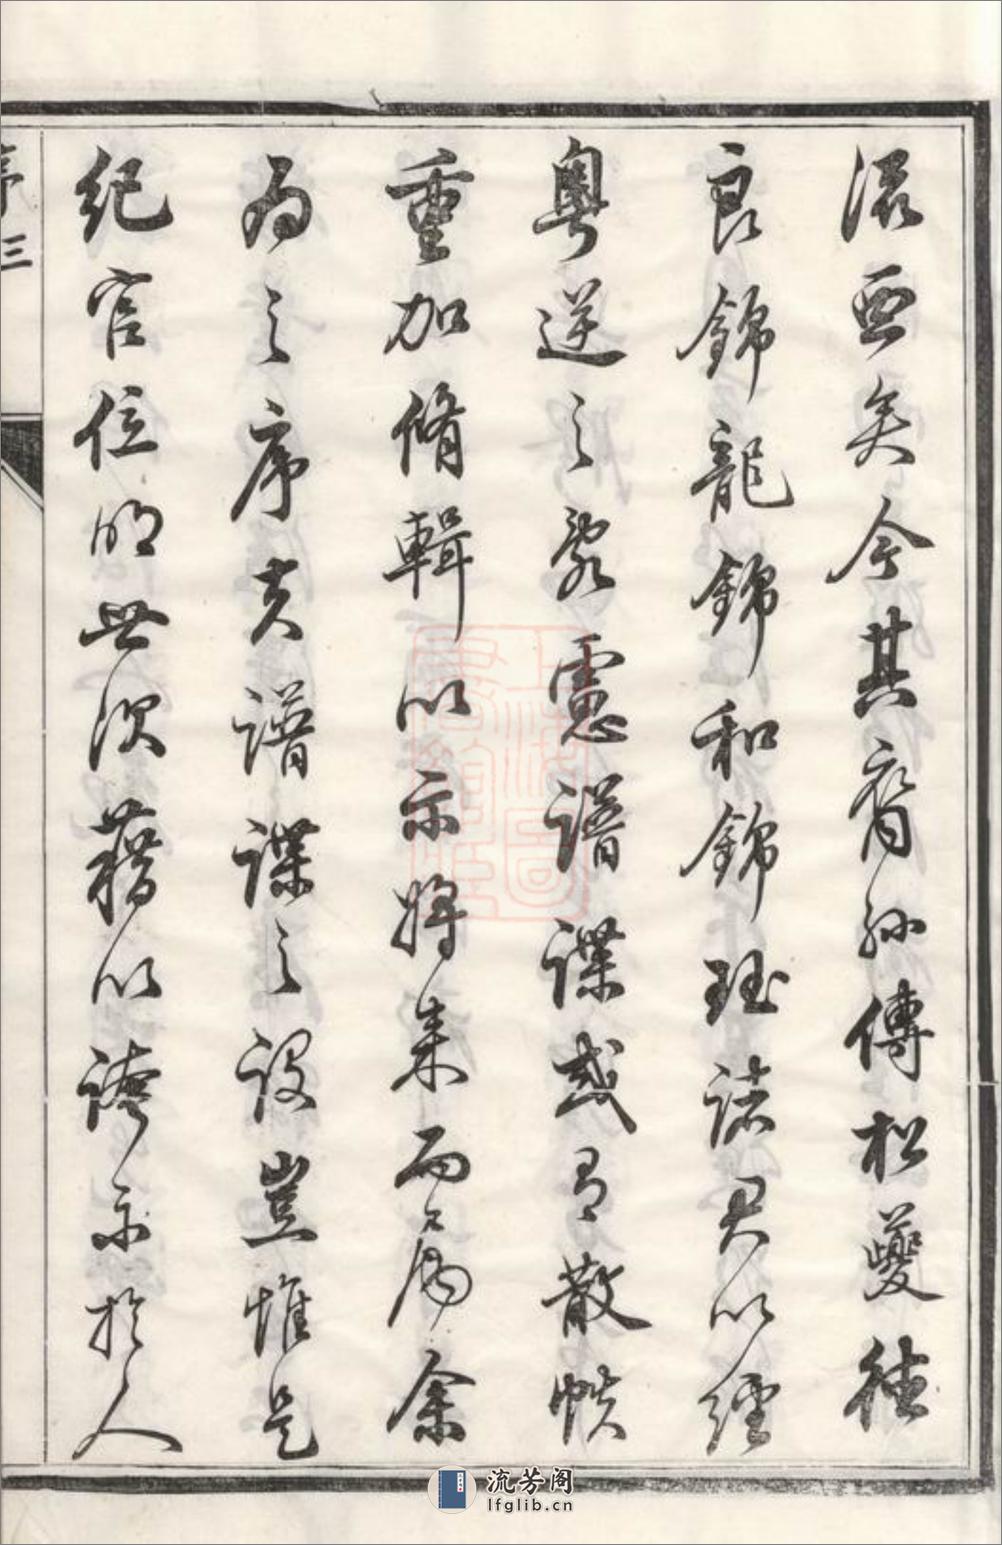 流亞矣今其裔孫傳松夔德
良錦龍錦和錦珏諸君以經
粵逆之亂慮譜諜或有散帙
重加脩輯以示將來而屬余
為之序夫譜諜之設豈惟是
紀官位明世次藉以誇示於人
序 三
流芳阁
lfglib.cn